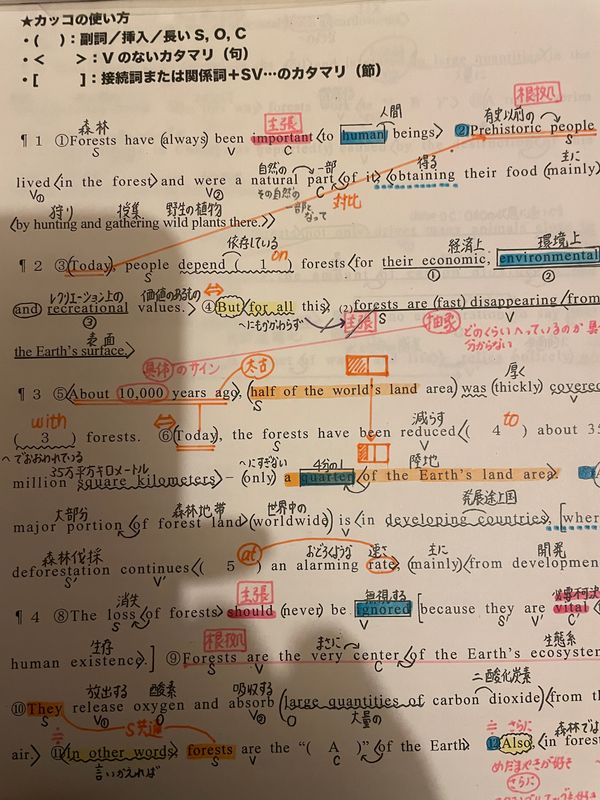 ★カッコの使い方
・( ):副詞/挿入/長い S, O, C
・< >:Vのないカタマリ(句)
・[ ]:接続詞または関係詞+SV…のカタマリ(節)
森林 主張 人間 根拠処 有史以前の
¶1 ①Forests have (always) been important <to human beings> ②Prehistoric people
S V C S
自然の 一部 得る 主に
lived <in the forest> and were a natural part <of it> <obtaining their food (mainly)
V① V② その自然の C 対比
狩り 採集 野生の植物 一部となって
<by hunting and gathering wild plants there.>>
依存している 経済上 環境上
¶2 ③(Today), people depend ( 1 on ) forests <for their economic, environmental
S V ① ②
レクリエーション上の 価値のあるもの
and recreational values.> ④(But) <for all this>, (2)forests are (fast) disappearing <from
③ へにもかかわらず 主張 S V 抽象
表面 どのくらいへっているのか
the Earth's surface.> 分からない
具体のサイン 太古
厚く
¶3 ⑤(About 10,000 years ago), (half of the world's land area) was (thickly) covered
S V
with 減らす to
( 3 ) forests. ⑥(Today), the forests have been reduced <( 4 ) about 35
でおおわれている S V
35万平方キロメートル へにすぎない 4分の1 陸地
million square kilometers> – (only) a quarter <of the Earth's land area>.
大部分 森林地帯 世界中の 発展途上国
major portion <of forest land> (worldwide) is <in developing countries>, [wher
S V
森林伐採 at おどろくような 速さ 主に 開発
deforestation continues <( 5 ) an alarming rate> (mainly) <from developmen
S' V'
消失 主張 無視する 必要不可決
¶4 ⑧The loss <of forests> should (never) be ignored [because they are vital
S V S' V' C'
生存 根拠処 まさに 生態系
human existence>.] ⑨Forests are the very center <of the Earth's ecosystem
S V C
放出する 酸素 吸収する 二酸化炭素
⑩They release oxygen and absorb (large quantities of carbon dioxide) <from th
S V① O V② O 大量の
≒ S共通 ≒ さらに 森林では
air.> ⑪<In other words> forests are the “( A )” <of the Earth> ⑫Also, <in fores
言いかえれば S V C
めだまやきが好き
さらに